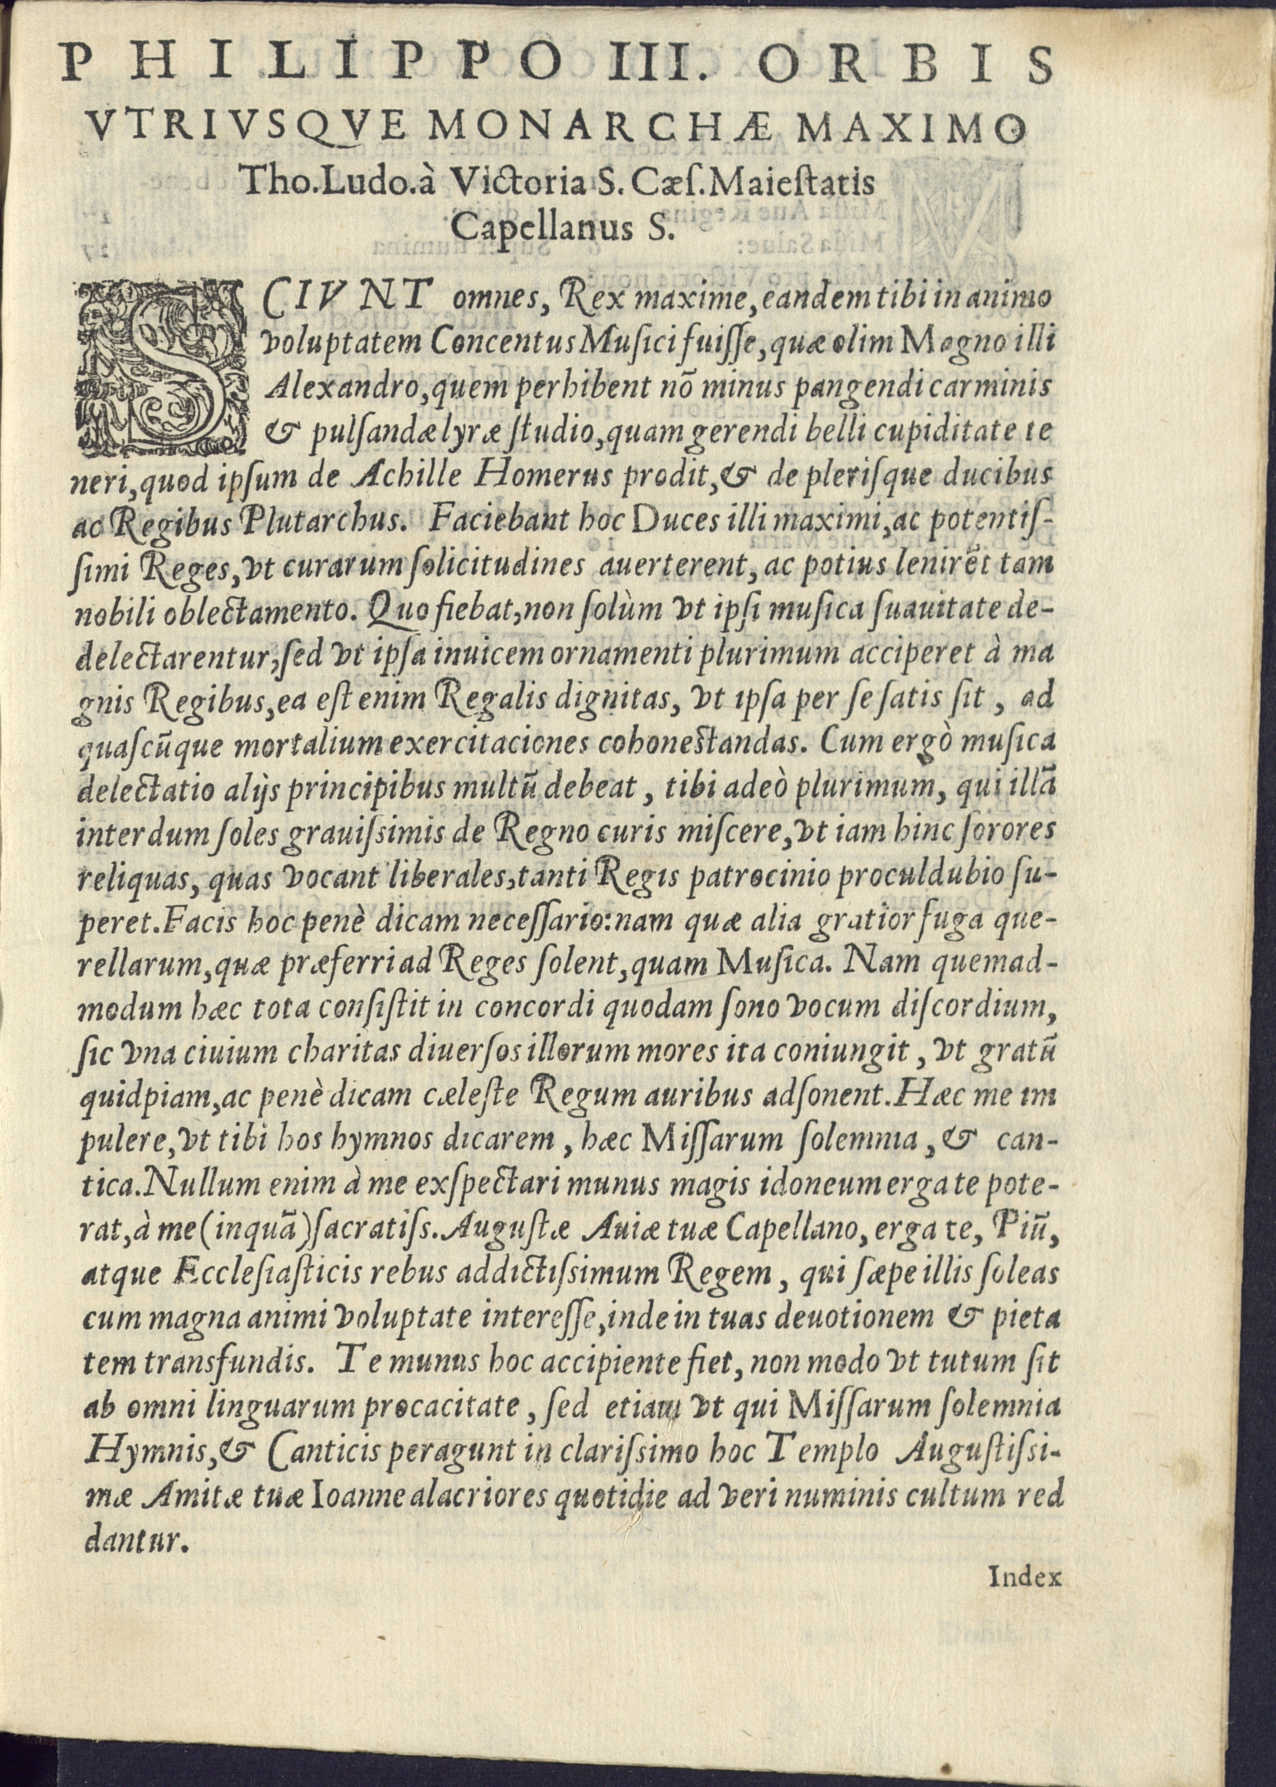 PHILIPPO III. ORBIS
VTRIVSQVE MONARCHÆ MAXIMO
Tho.Ludo.à Victoria S. Cæſ.Maieſtatis
Capellanus S.
SCIVNT omnes, Rex maxime, eandem tibi in animo
voluptatem Concentus Muſici fuiſſe, quæ olim Magno illi
Alexandro, quem perhibent nõ minus pangendi carminis
& pulſandæ lyræ ſtudio, quam gerendi belli cupiditate te
neri, quod ipſum de Achille Homerus prodit, & de pleriſque ducibus
ac Regibus Plutarchus. Faciebant hoc Duces illi maximi, ac potentiſ-
ſimi Reges, vt curarum ſolicitudines auerterent, ac potius lenirẽt tam
nobili oblectamento. Quo fiebat, non ſolùm vt ipſi muſica ſuauitate de-
delectarentur, ſed vt ipſa inuicem ornamenti plurimum acciperet à ma
gnis Regibus, ea eſt enim Regalis dignitas, vt ipſa per ſe ſatis ſit, ad
quaſcũque mortalium exercitaciones cohoneſtandas. Cum ergò muſica
delectatio alijs principibus multũ debeat, tibi adeò plurimum, qui illã
interdum ſoles grauiſsimis de Regno curis miſcere, vt iam hinc ſorores
reliquas, quas vocant liberales, tanti Regis patrocinio proculdubio ſu-
peret. Facis hoc penè dicam neceſſario: nam quæ alia gratior fuga que-
rellarum, quæ præferri ad Reges ſolent, quam Muſica. Nam quemad-
modum hæc tota conſiſtit in concordi quodam ſono vocum diſcordium,
ſic vna ciuium charitas diuerſos illorum mores ita coniungit, vt gratũ
quidpiam, ac penè dicam cæleſte Regum auribus adſonent. Hæc me im
pulere, vt tibi hos hymnos dicarem, hæc Miſſarum ſolemnia, & can-
tica. Nullum enim à me exſpectari munus magis idoneum erga te pote-
rat, à me (inquã) ſacratiſs. Auguſtæ Auiæ tuæ Capellano, erga te, Piũ,
atque Eccleſiaſticis rebus addictiſsimum Regem, qui ſæpe illis ſoleas
cum magna animi voluptate intereſſe, inde in tuas deuotionem & pieta
tem transfundis. Te munus hoc accipiente fiet, non modo vt tutum ſit
ab omni linguarum procacitate, ſed etiam vt qui Miſſarum ſolemnia
Hymnis, & Canticis peragunt in clariſsimo hoc Templo Auguſtiſsi-
mæ Amitæ tuæ Ioanne alacriores quotidie ad veri numinis cultum red
dantur.
Index